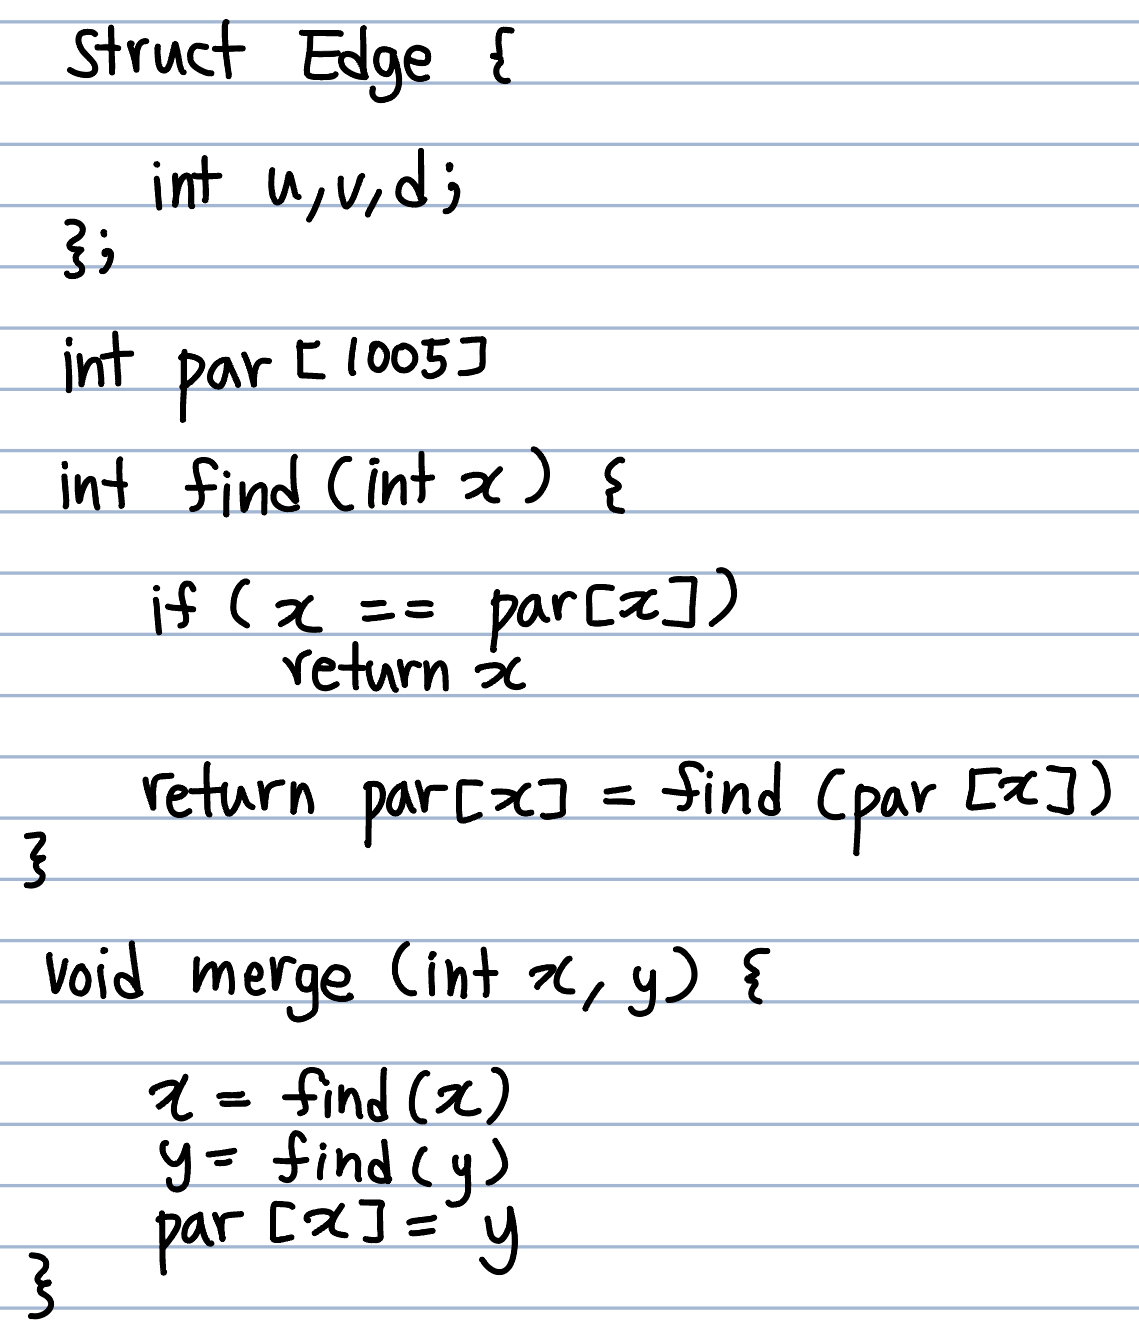 struct Edge {
int u,v,d;
};
int par [1005]
int find (int x) {
if (x == par[x])
return x
return par[x] = find (par [x])
}
void merge (int x, y) {
x = find(x)
y = find(y)
par [x] = y
}